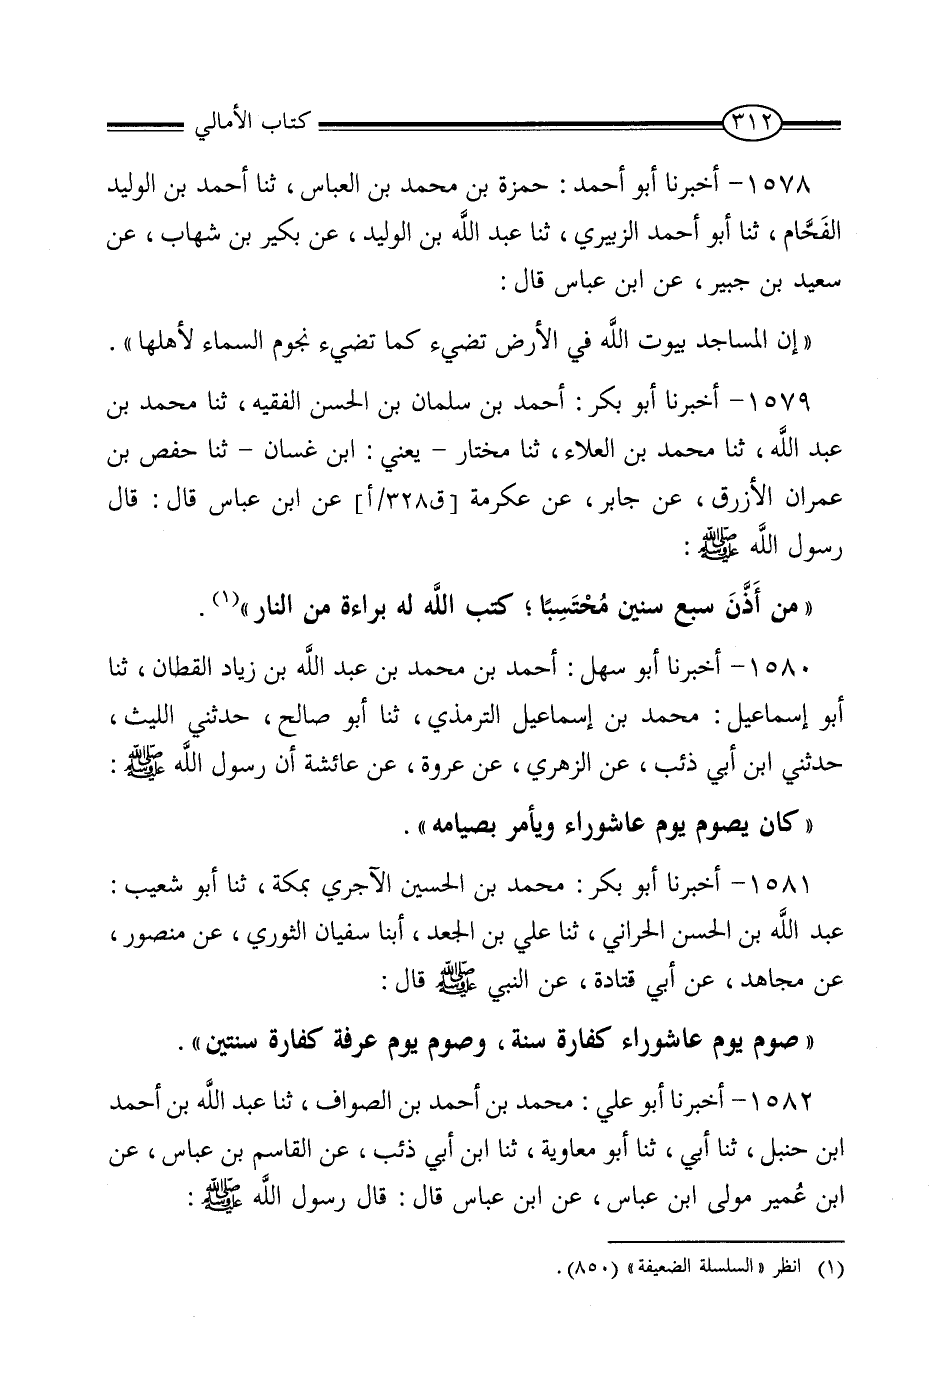 ٣١٢ كتاب الأمالي
١٥٧٨- أخبرنا أبو أحمد : حمزة بن محمد بن العباس ، ثنا أحمد بن الوليد
الفَحَّام ، ثنا أبو أحمد الزبيري ، ثنا عبد اللَّه بن الوليد ، عن بكير بن شهاب ، عن
سعيد بن جبير ، عن ابن عباس قال :
« إن المساجد بيوت اللَّه في الأرض تضيء كما تضيء نجوم السماء لأهلها » .
١٥٧٩- أخبرنا أبو بكر : أحمد بن سلمان بن الحسن الفقيه ، ثنا محمد بن
عبد اللَّه ، ثنا محمد بن العلاء ، ثنا مختار - يعني : ابن غسان - ثنا حفص بن
عمران الأزرق ، عن جابر ، عن عكرمة [ق٣٢٨/أ] عن ابن عباس قال : قال
رسول اللَّه ﷺ :
« من أَذَّنَ سبع سنين مُحْتَسِبًا ؛ كتب اللَّه له براءة من النار »(١) .
١٥٨٠- أخبرنا أبو سهل : أحمد بن محمد بن عبد اللَّه بن زياد القطان ، ثنا
أبو إسماعيل : محمد بن إسماعيل الترمذي ، ثنا أبو صالح ، حدثني الليث ،
حدثني ابن أبي ذئب ، عن الزهري ، عن عروة ، عن عائشة أن رسول اللَّه ﷺ :
« كان يصوم يوم عاشوراء ويأمر بصيامه » .
١٥٨١- أخبرنا أبو بكر : محمد بن الحسين الآجري بمكة ، ثنا أبو شعيب :
عبد اللَّه بن الحسن الحراني ، ثنا علي بن الجعد ، أبنا سفيان الثوري ، عن منصور ،
عن مجاهد ، عن أبي قتادة ، عن النبي ﷺ قال :
« صوم يوم عاشوراء كفارة سنة ، وصوم يوم عرفة كفارة سنتين » .
١٥٨٢- أخبرنا أبو علي : محمد بن أحمد بن الصواف ، ثنا عبد اللَّه بن أحمد
ابن حنبل ، ثنا أبي ، ثنا أبو معاوية ، ثنا ابن أبي ذئب ، عن القاسم بن عباس ، عن
ابن عُمير مولى ابن عباس ، عن ابن عباس قال : قال رسول اللَّه ﷺ :
(١) انظر « السلسلة الضعيفة » (٨٥٠) .